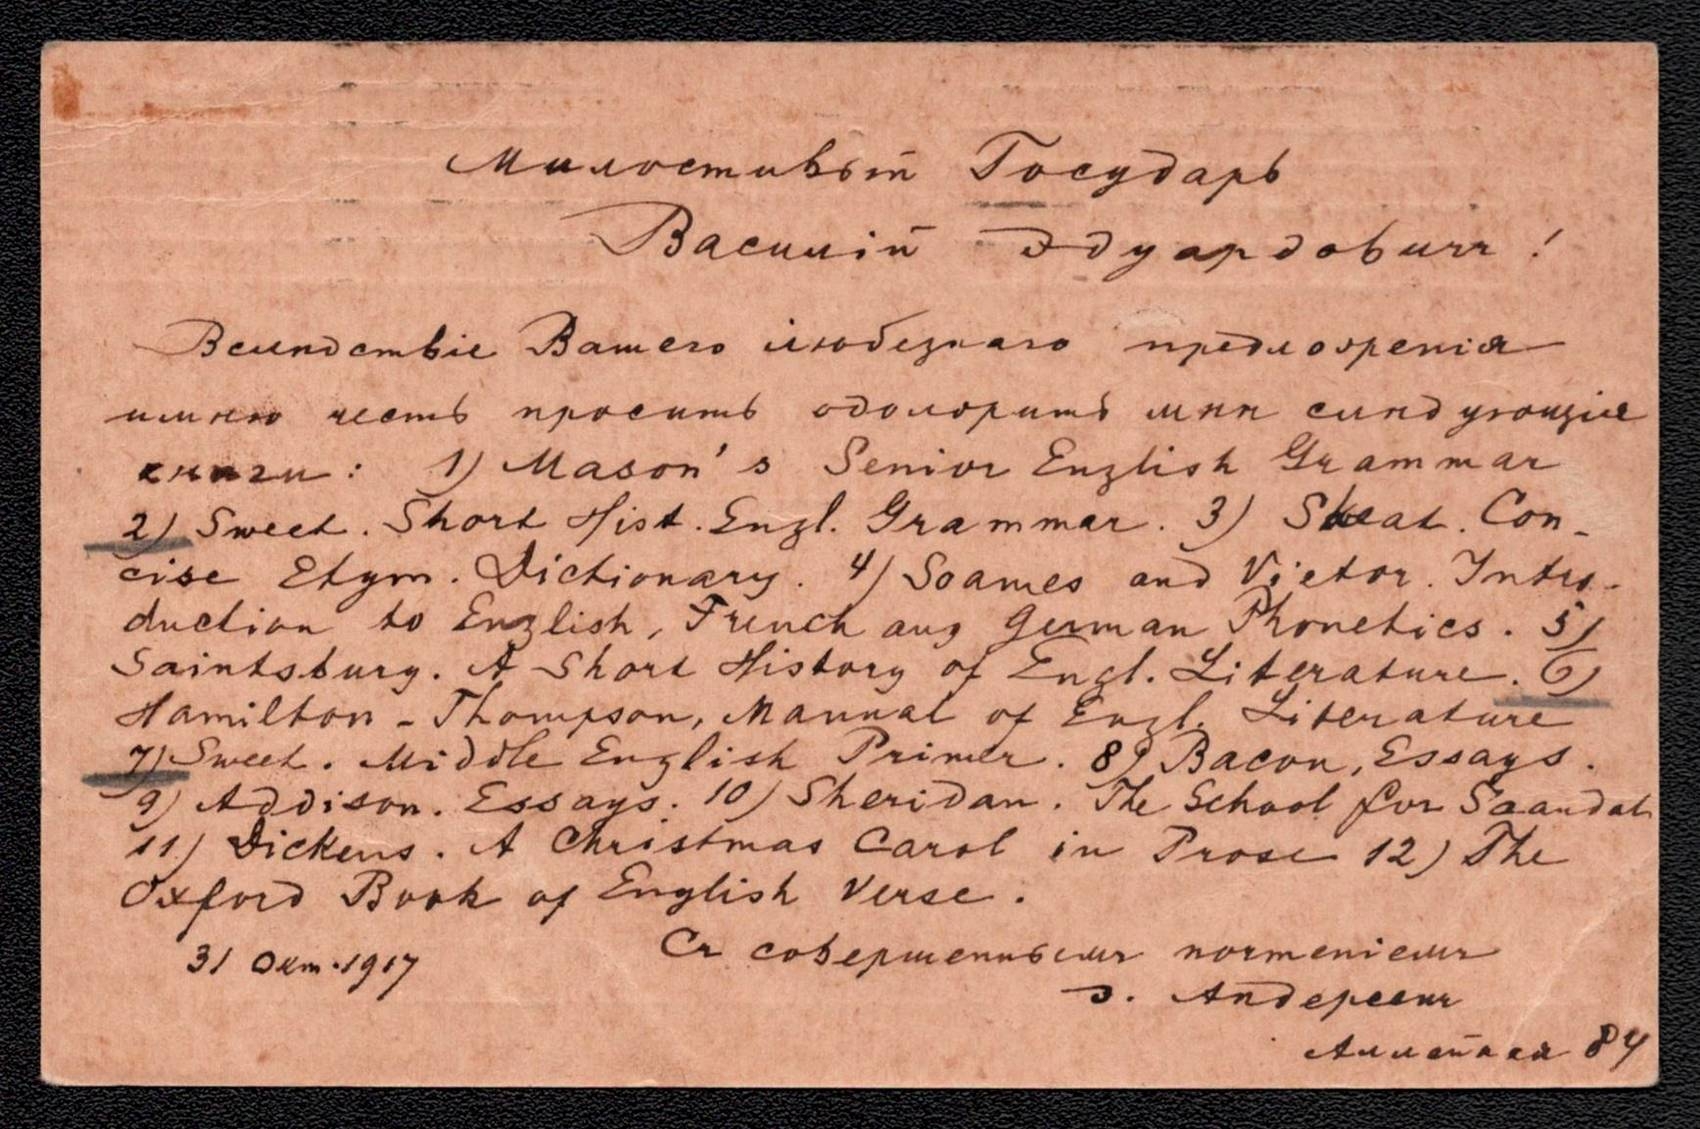 Милостивый Государь
Василій Эдуардовичъ!
Вслѣдствіе Вашего любезнаго предложенія
имѣю честь просить одолжить мнѣ слѣдующіе
книги: 1) Mason's Senior English Grammar
2) Sweet. Short Hist. Engl. Grammar. 3) Skeat. Con-
cise Etym. Dictionary. 4) Soames and Vietor. Intro-
duction to English, French aug German Phonetics. 5)
Saintsburg. A Short History of Engl. Literature. 6)
Hamilton-Thompson, Manual of Engl. Literature
7) Sweet. Middle English Primer. 8) Bacon, Essays.
9) Addison. Essays. 10) Sheridan. The School for Scandal
11) Dickens. A Christmas Carol in Prose 12) The
Oxford Book of English Verse.
31 Окт. 1917 Съ совершеннымъ почтеніемъ
Э. Андерсинъ
84